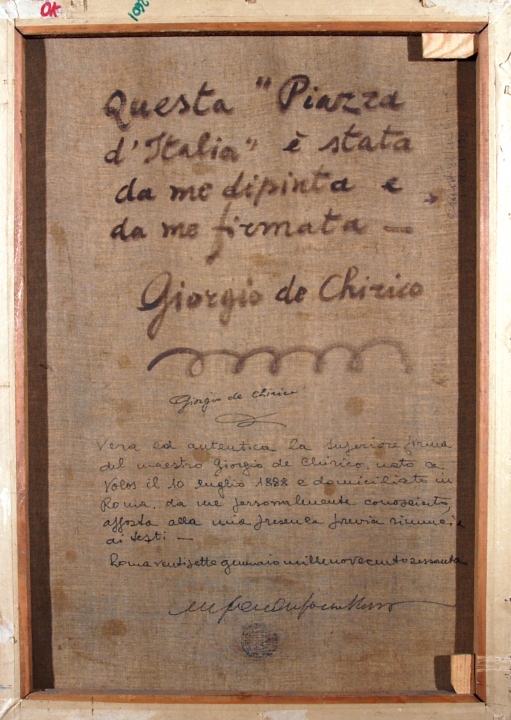 OK
Questa "Piazza
d'Italia" è stata
da me dipinta e
da me firmata —
Giorgio de Chirico
Giorgio de Chirico
Vera ed autentica la superiore firma
del maestro Giorgio de Chirico, nato a
Volos il 10 luglio 1888 e domiciliato in
Roma, da me personalmente conosciuto,
apposta alla mia presenza previa rinuncia
ai testi —
Roma ventisette gennaio millenovecentosessanta